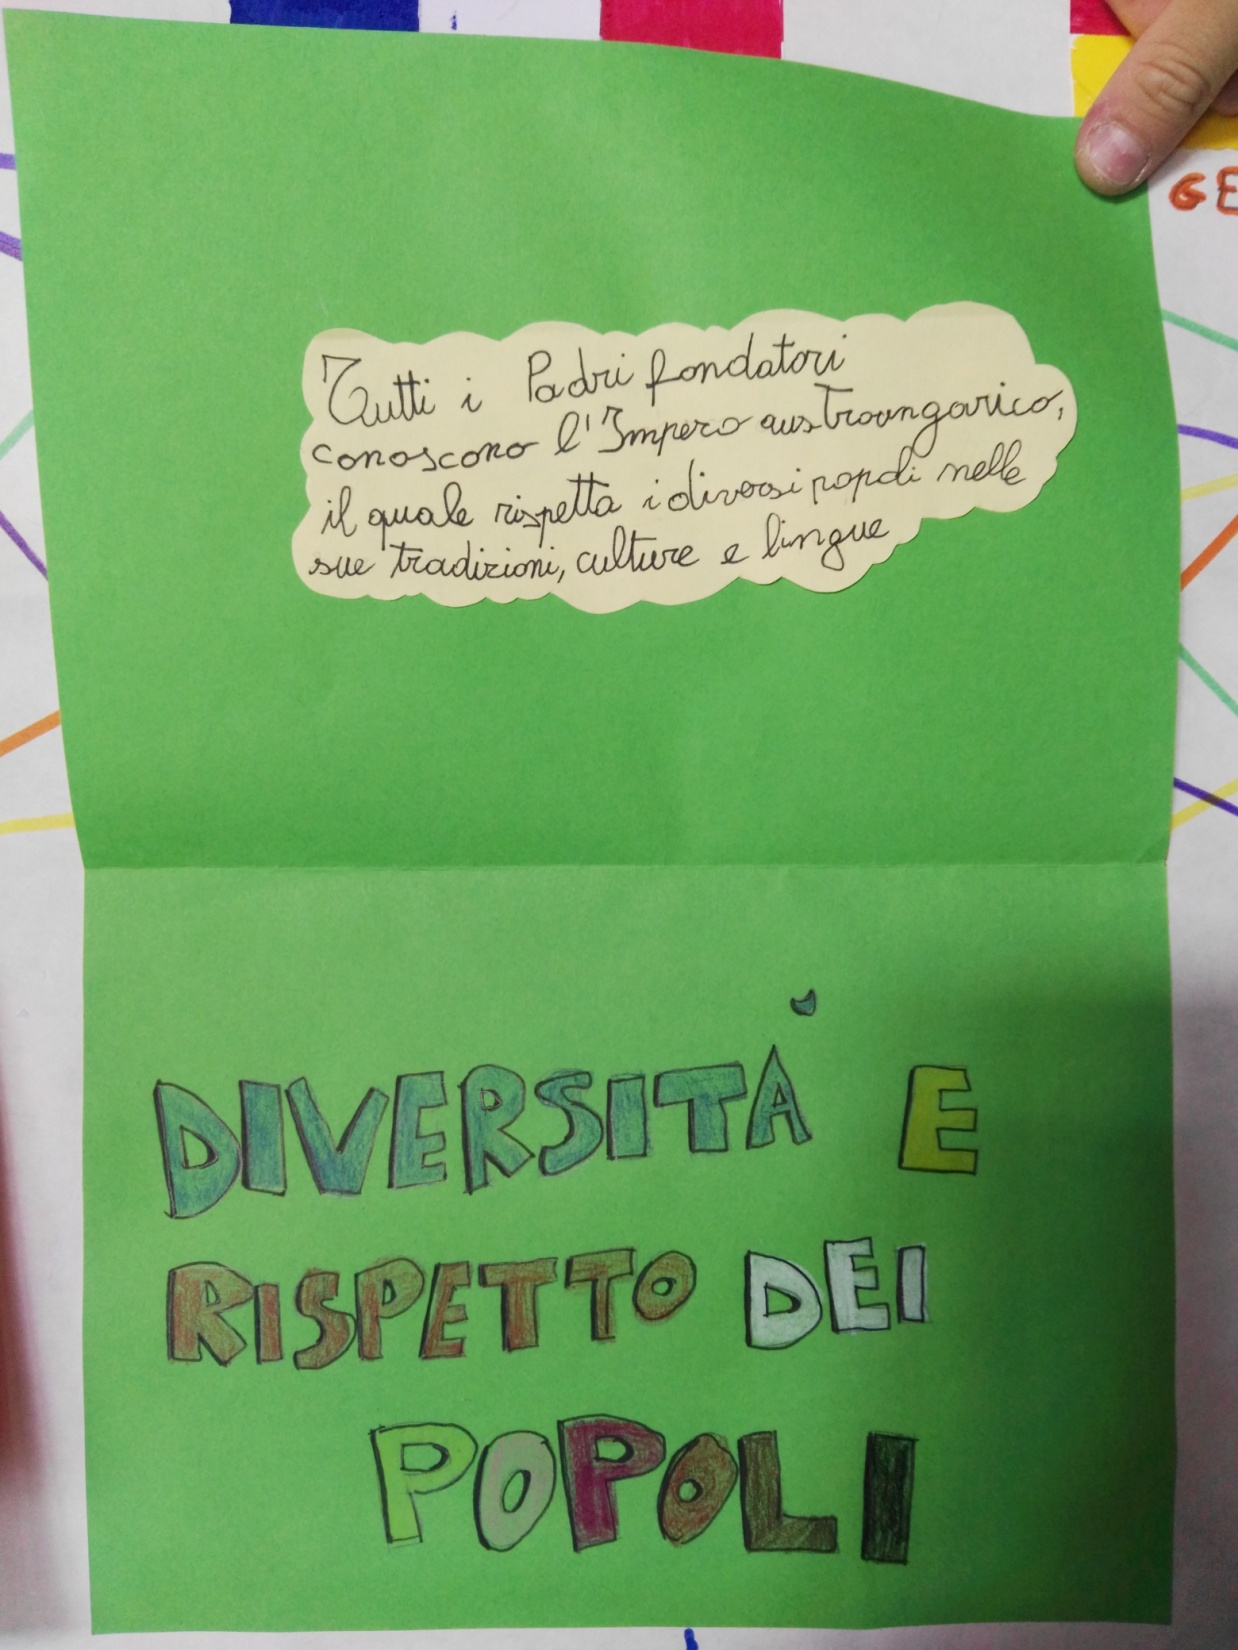 GE
Tutti i Padri fondatori
conoscono l'Impero austroungarico,
il quale rispetta i diversi popoli nelle
sue tradizioni, culture e lingue
DIVERSITÀ E
RISPETTO DEI
POPOLI